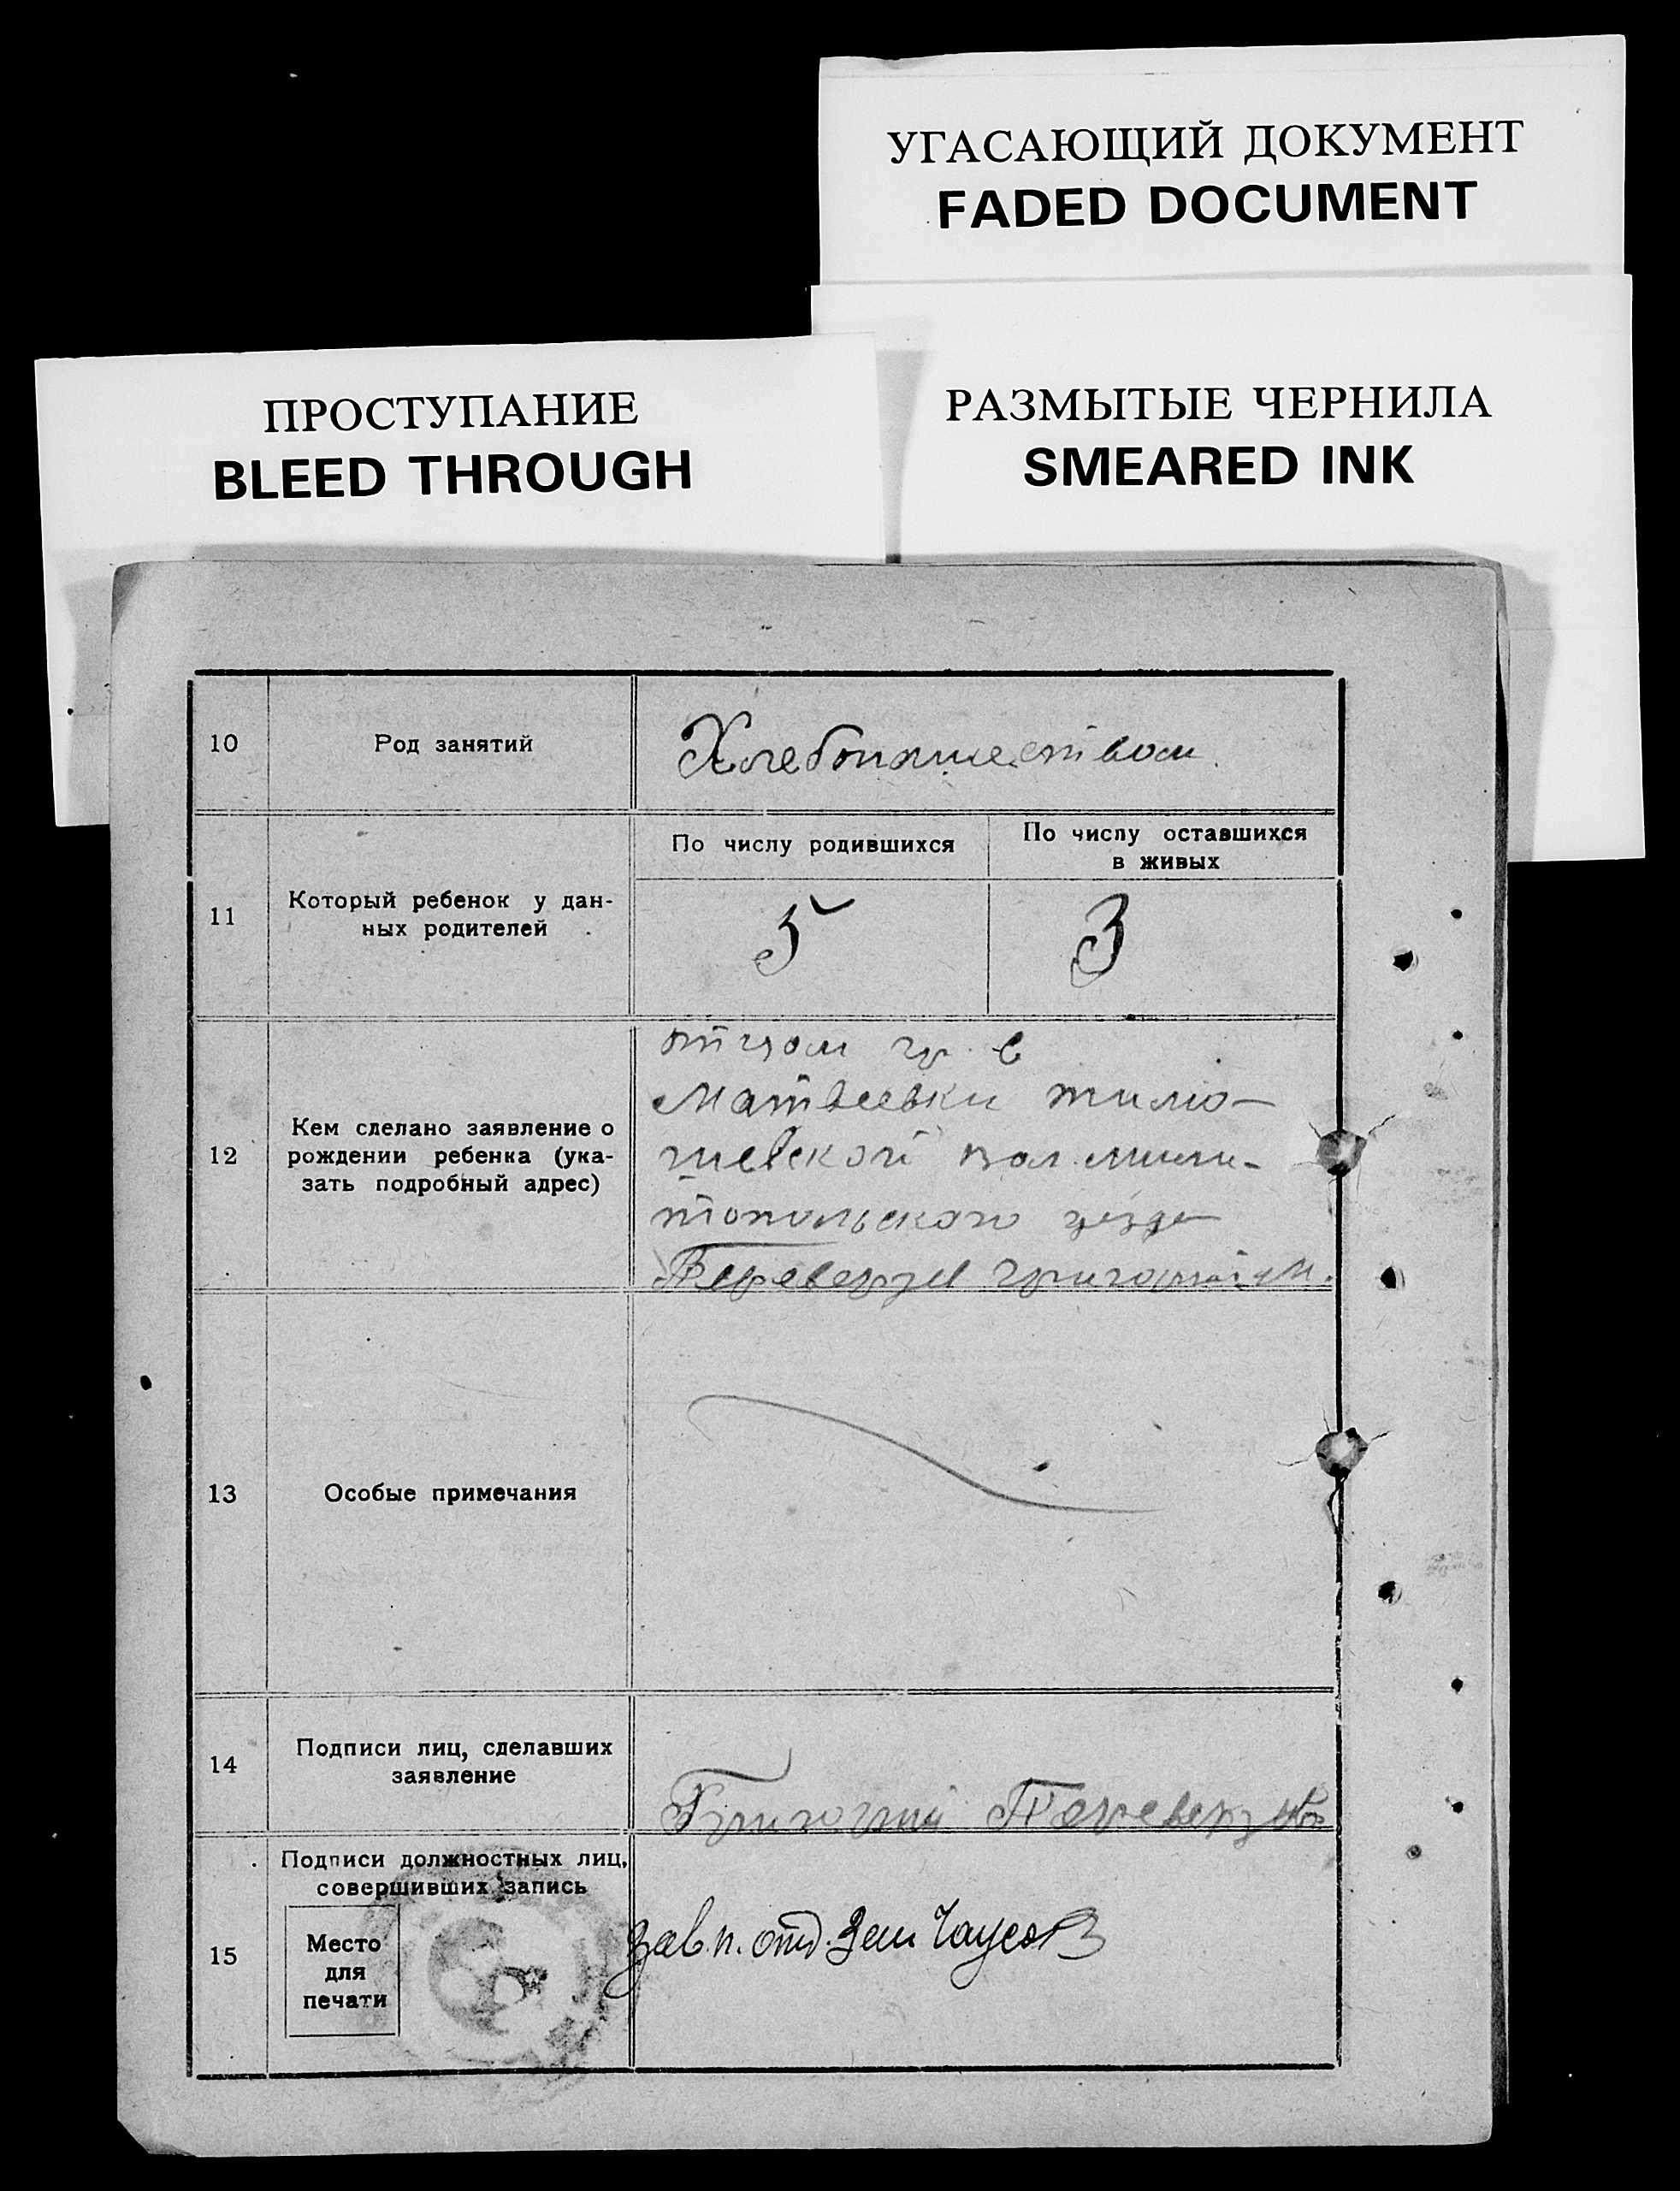 УГАСАЮЩИЙ ДОКУМЕНТ
FADED DOCUMENT
ПРОСТУПАНИЕ
BLEED THROUGH
РАЗМЫТЫЕ ЧЕРНИЛА
SMEARED INK
10
Род занятий
Хлебопашеством.
11
Который ребенок у дан-
ных родителей
По числу родившихся
По числу оставшихся
в живых
5
3
12
Кем сделано заявление о
рождении ребенка (ука-
зать подробный адрес)
отцом гр. с
Матвеевки
вол. мели-
топольского уезда
Переверзев Григорий
13
Особые примечания
14
Подписи лиц, сделавших
заявление
Григорий Переверзев
15
Подписи должностных лиц,
совершивших запись
Место
для
печати
Зав. п. отд. Зем